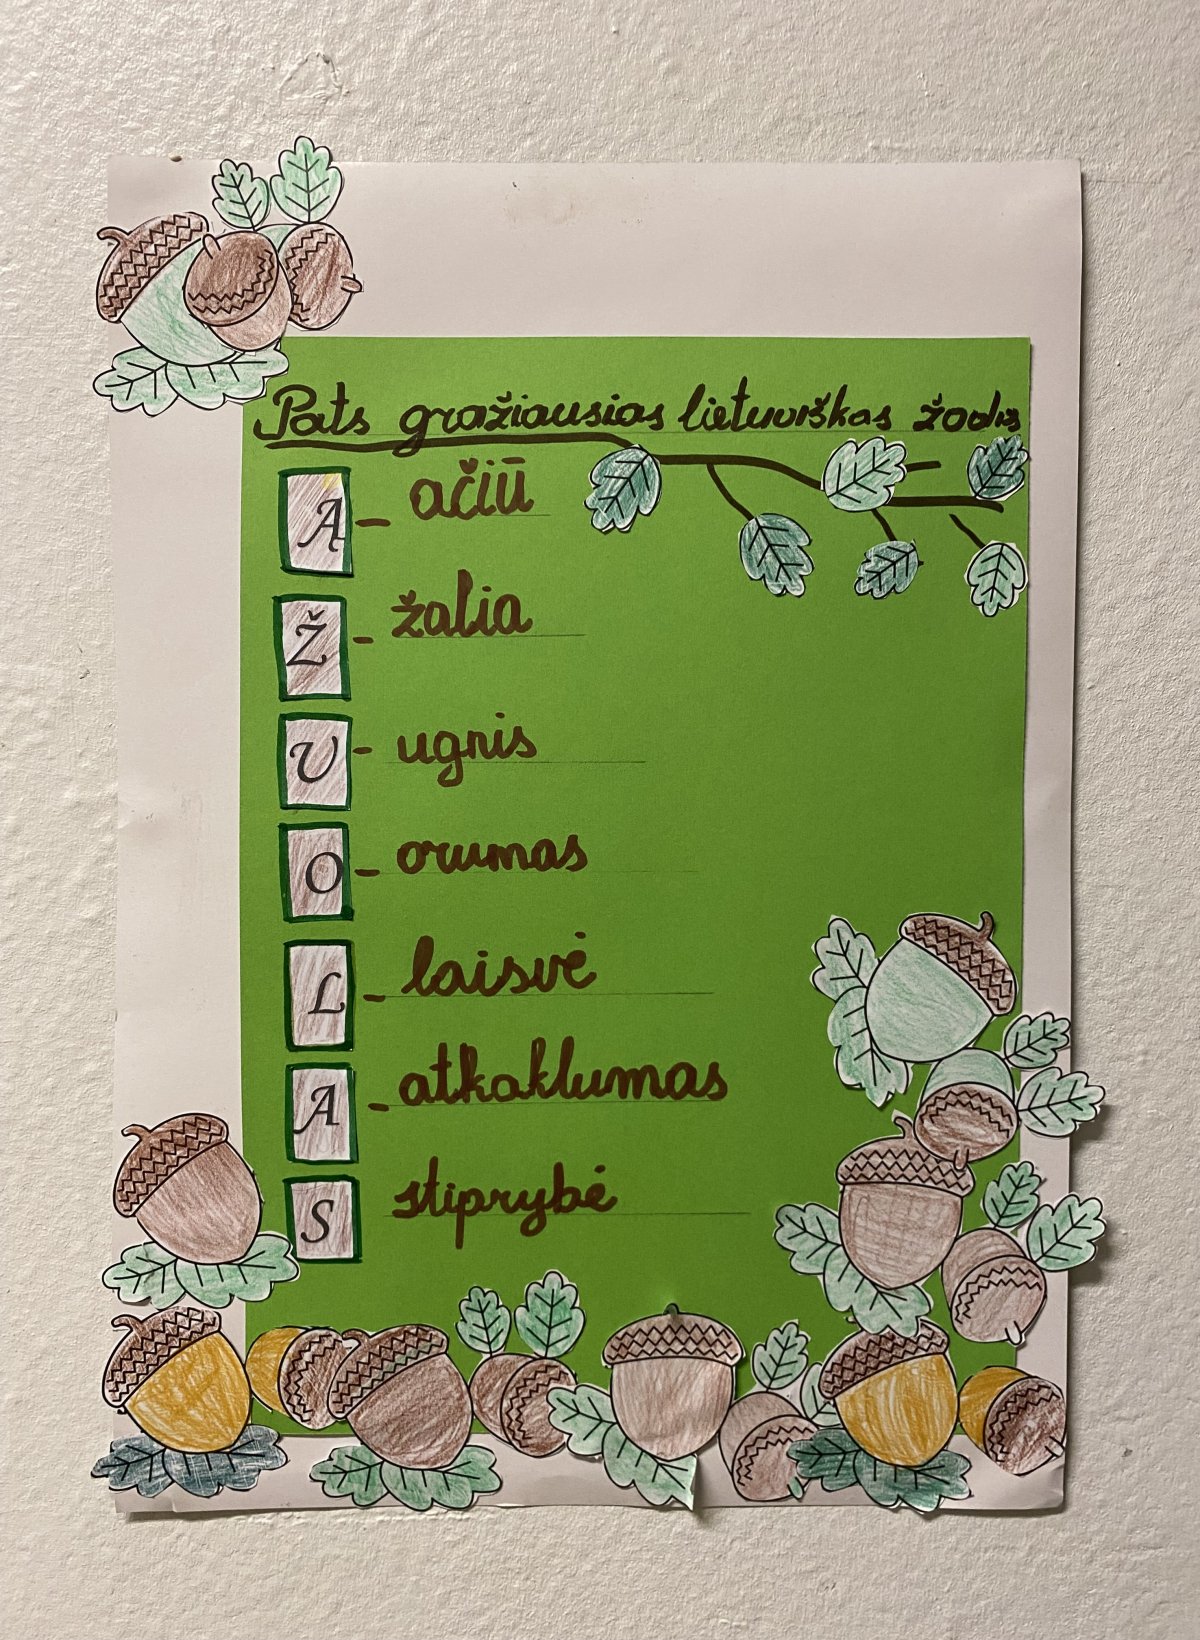 Pats gražiausias lietuviškas žodis
A - ačiū
Ž - žalia
U - ugnis
O - orumas
L - laisvė
A - atkaklumas
S stiprybė